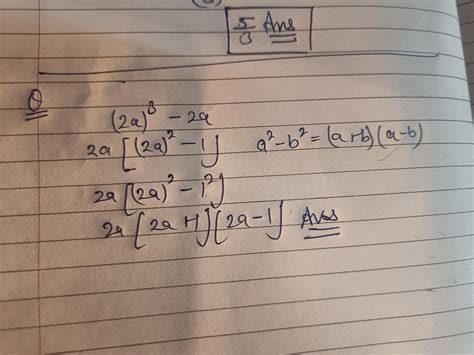 5/3 Ans
Q
(2a)³ - 2a
2a [(2a)² - 1] a² - b² = (a+b) (a-b)
2a [(2a)² - 1²]
2a [2a + 1] [2a - 1] Ans